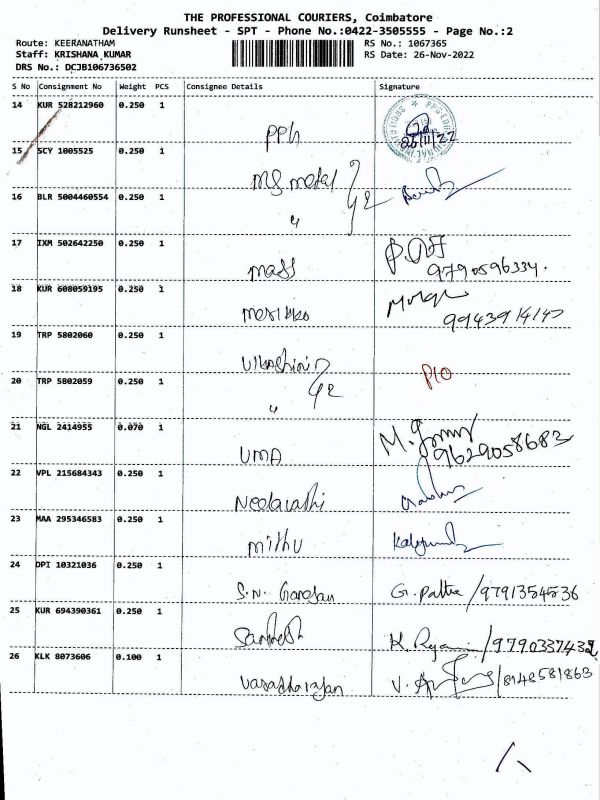 THE PROFESSIONAL COURIERS, Coimbatore
Delivery Runsheet - SPT - Phone No.:0422-3505555 - Page No.:2
Route: KEERANATHAM RS No.: 1067365
Staff: KRISHANA KUMAR RS Date: 26-Nov-2022
DRS No.: DCJB106736502
S No Consignment No Weight PCS Consignee Details Signature
14 KUR 528212960 0.250 1
PPG
26/11/22
15 SCY 1005525 0.250 1
MS metal
16 BLR 5004460554 0.250 1
"
17 IXM 502642250 0.250 1
mass
9790596334.
18 KUR 608059195 0.250 1
19 TRP 5802060 0.250 1
20 TRP 5802059 0.250 1
"
21 NGL 2414955 0.070 1
UMA 9629058683
22 VPL 215684343 0.250 1
23 MAA 295346583 0.250 1
mithu
24 DPI 10321036 0.250 1
S.N. Ganesan
25 KUR 694390361 0.250 1
Santhosh
26 KLK 8073606 0.100 1
Varadharajan